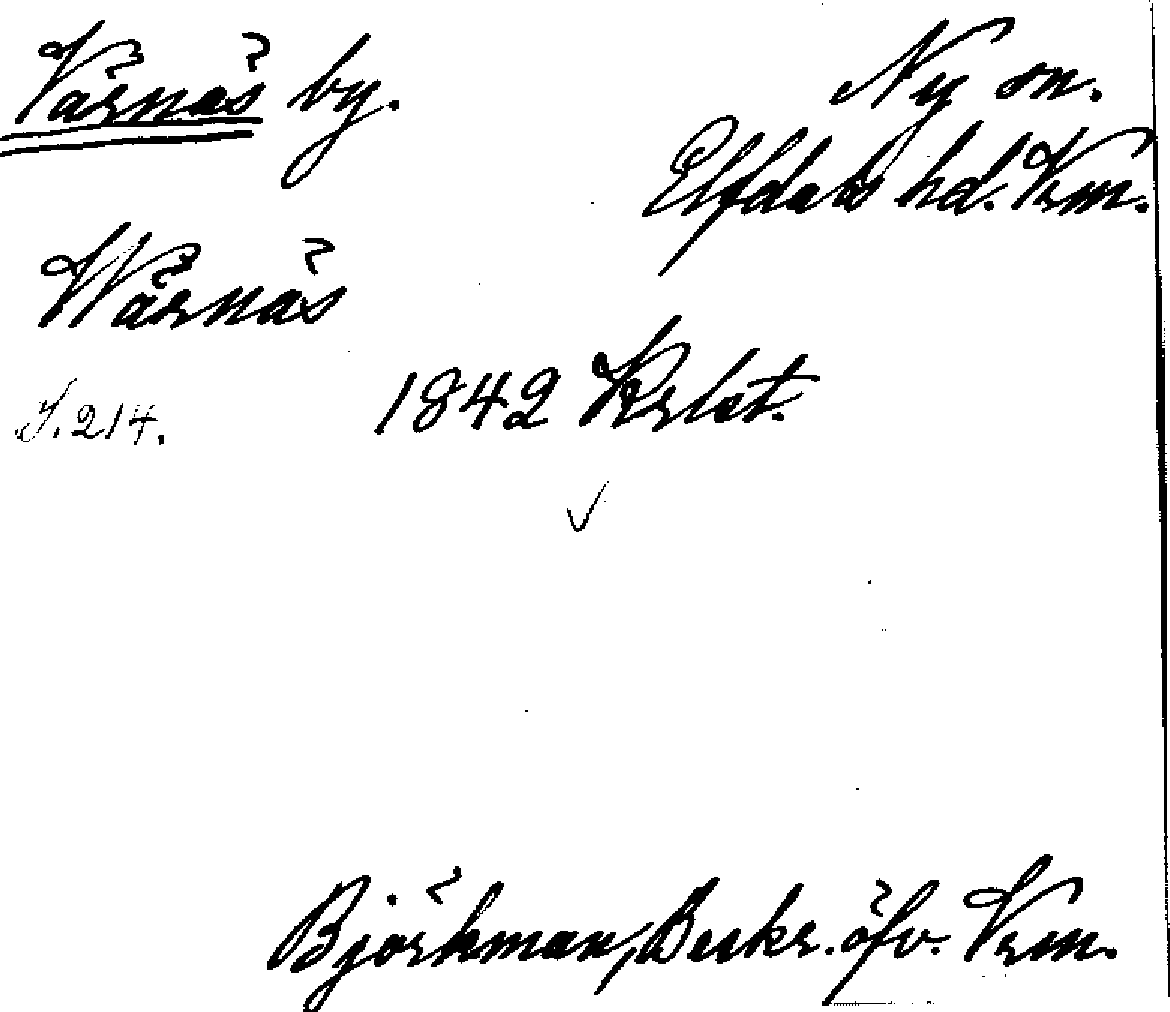 Värnäs by.
Ny sn.
Elfdals hd. Vrm.
Wärnäs
S. 214.
1842 Krlst.
Björkman, Beskr. öfv. Vrm.